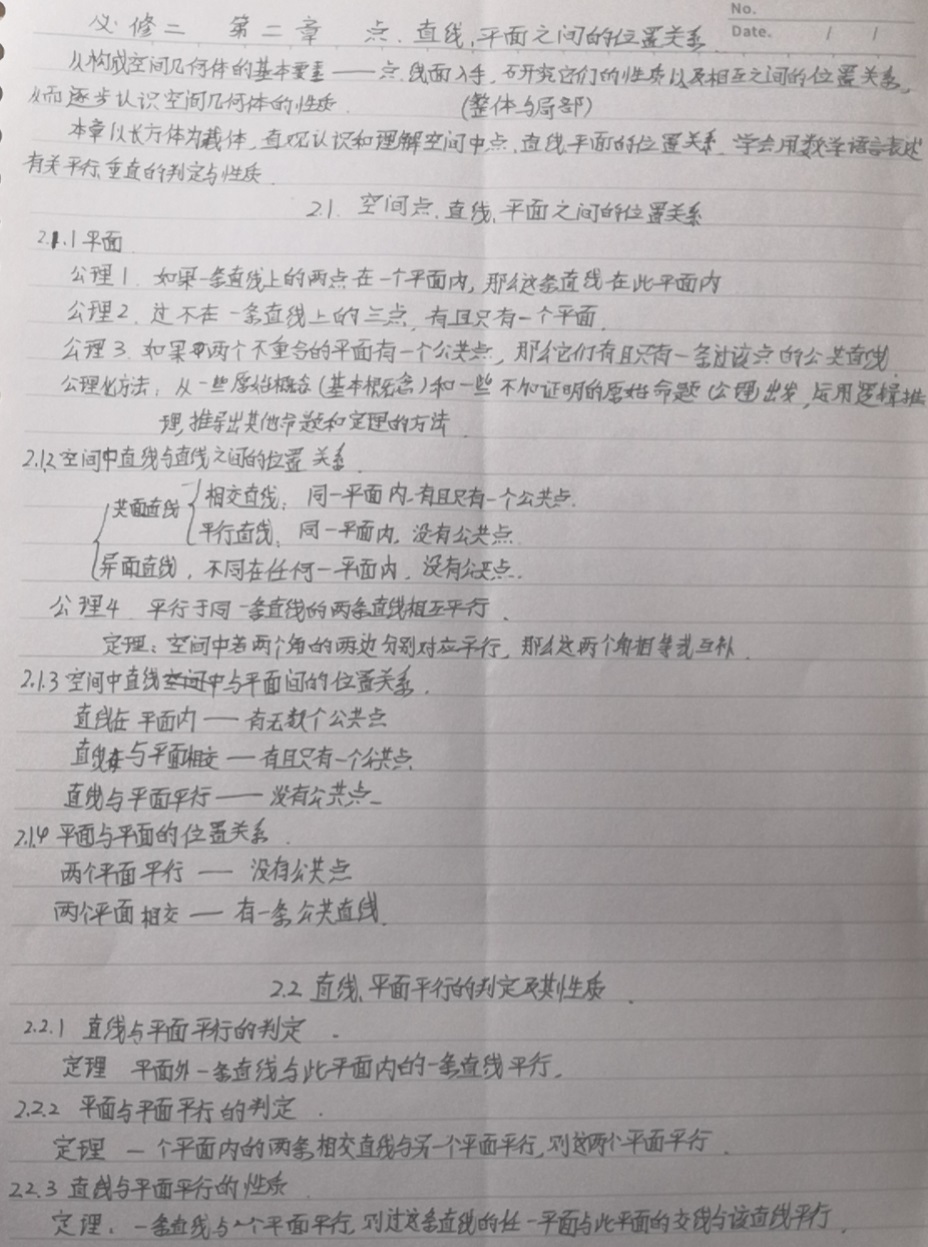 No.
Date. / /
必修二 第二章 点、直线、平面之间的位置关系
从构成空间几何体的基本要素——点线面入手,研究它们的性质以及相互之间的位置关系,
从而逐步认识空间几何体的性质. (整体与局部)
本章以长方体为载体,直观认识和理解空间中点、直线、平面的位置关系.学会用数学语言表述
有关平行、垂直的判定与性质.
2.1. 空间点、直线、平面之间的位置关系
2.1.1 平面
公理1. 如果一条直线上的两点在一个平面内,那么这条直线在此平面内
公理2. 过不在一条直线上的三点,有且只有一个平面.
公理3. 如果两个不重合的平面有一个公共点,那么它们有且只有一条过该点的公共直线.
公理化方法:从一些原始概念(基本概念)和一些不加证明的原始命题(公理)出发,运用逻辑推
理,推导出其他命题和定理的方法.
2.1.2 空间中直线与直线之间的位置关系.
共面直线 相交直线:同一平面内,有且只有一个公共点.
平行直线:同一平面内,没有公共点.
异面直线,不同在任何一平面内,没有公共点.
公理4 平行于同一条直线的两条直线相互平行.
定理:空间中若两个角的两边分别对应平行,那么这两个角相等或互补.
2.1.3 空间中直线与平面间的位置关系.
直线在平面内——有无数个公共点
直线与平面相交——有且只有一个公共点.
直线与平面平行——没有公共点.
2.1.4 平面与平面的位置关系.
两个平面平行——没有公共点
两个平面相交——有一条公共直线.
2.2 直线、平面平行的判定及其性质.
2.2.1 直线与平面平行的判定.
定理 平面外一条直线与此平面内的一条直线平行.
2.2.2 平面与平面平行的判定.
定理 一个平面内的两条相交直线与另一个平面平行,则这两个平面平行.
2.2.3 直线与平面平行的性质.
定理. 一条直线与一个平面平行,则过这条直线的任一平面与此平面的交线与该直线平行.